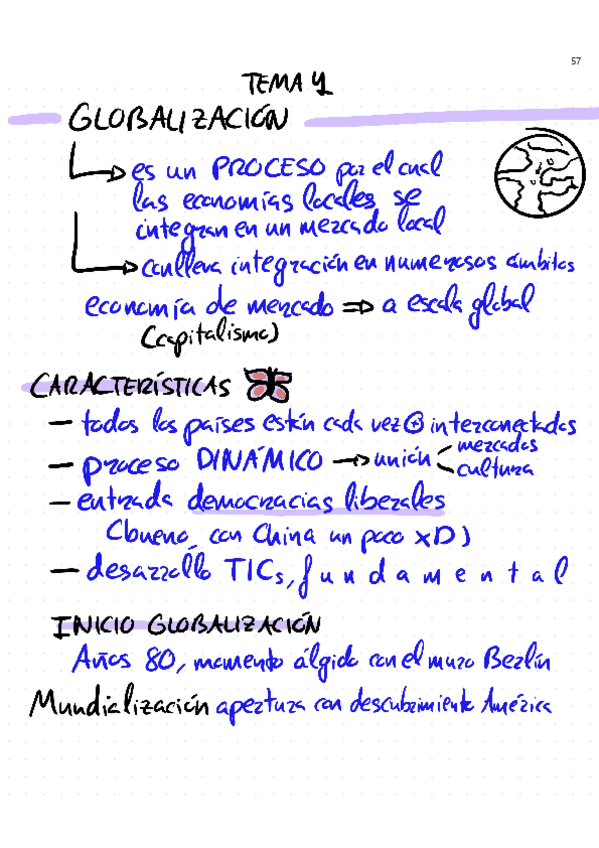 57
TEMA 1
GLOBALIZACIÓN
es un PROCESO por el cual
las economías locales se
integran en un mercado local
conlleva integración en numerosos ámbitos
economía de mercado ⇒ a escala global
(capitalismo)
CARACTERÍSTICAS
— todos los países están cada vez ⊕ interconectados
— proceso DINÁMICO → unión mercados
cultura
— entrada democracias liberales
(bueno, con China un poco xD)
— desarrollo TICs, fundamental
INICIO GLOBALIZACIÓN
Años 80, momento álgido con el muro Berlín
Mundialización apertura con descubrimiento América